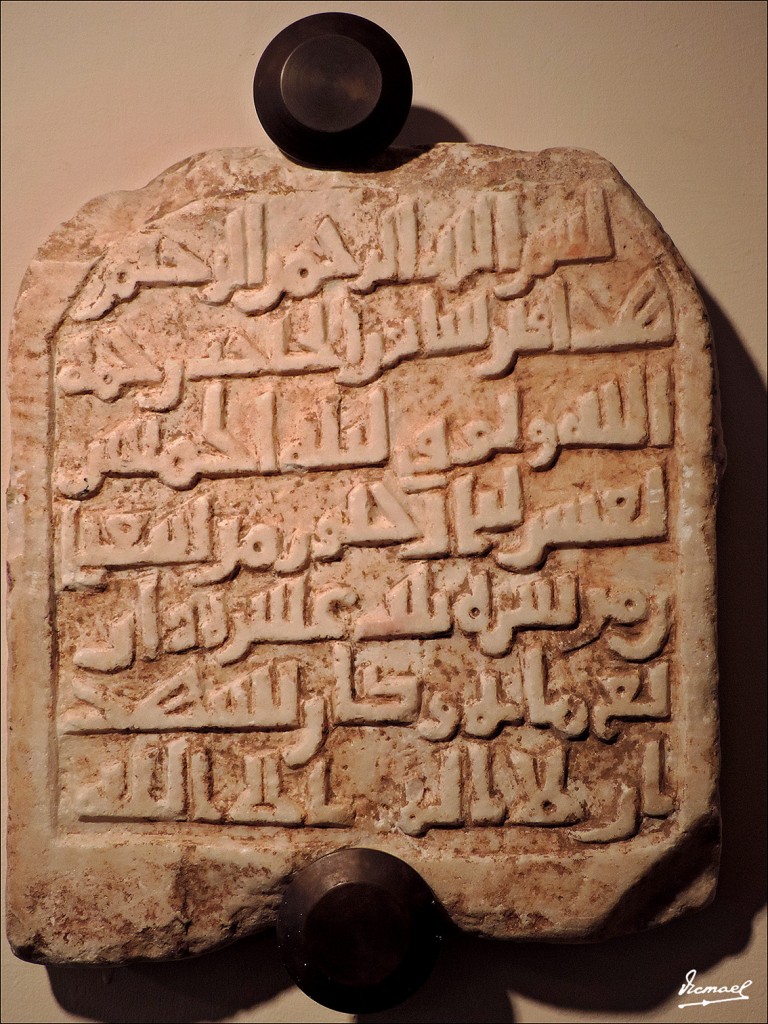 بسم الله الرحمن الرحيم
هذا قبر سابور الحاجب رحمه
الله وتوفي ليلة الخميس
لعشر ليال خلون من شعبا
ن من سنة ثلث عشرة وار
بع مائة وكان يشهد
ان لا اله الا الله